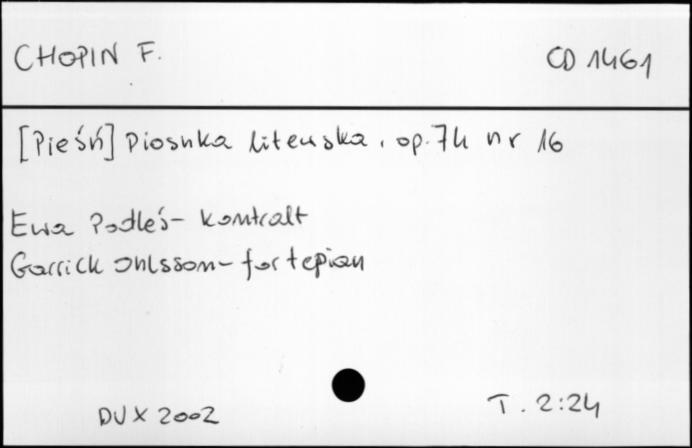 CHOPIN F. CD 1461
[Pieśń] Piosnka litewska, op. 74 nr 16
Ewa Podleś - kontralt
Garrick Ohlsson - fortepian
DUX 2002 T. 2:24